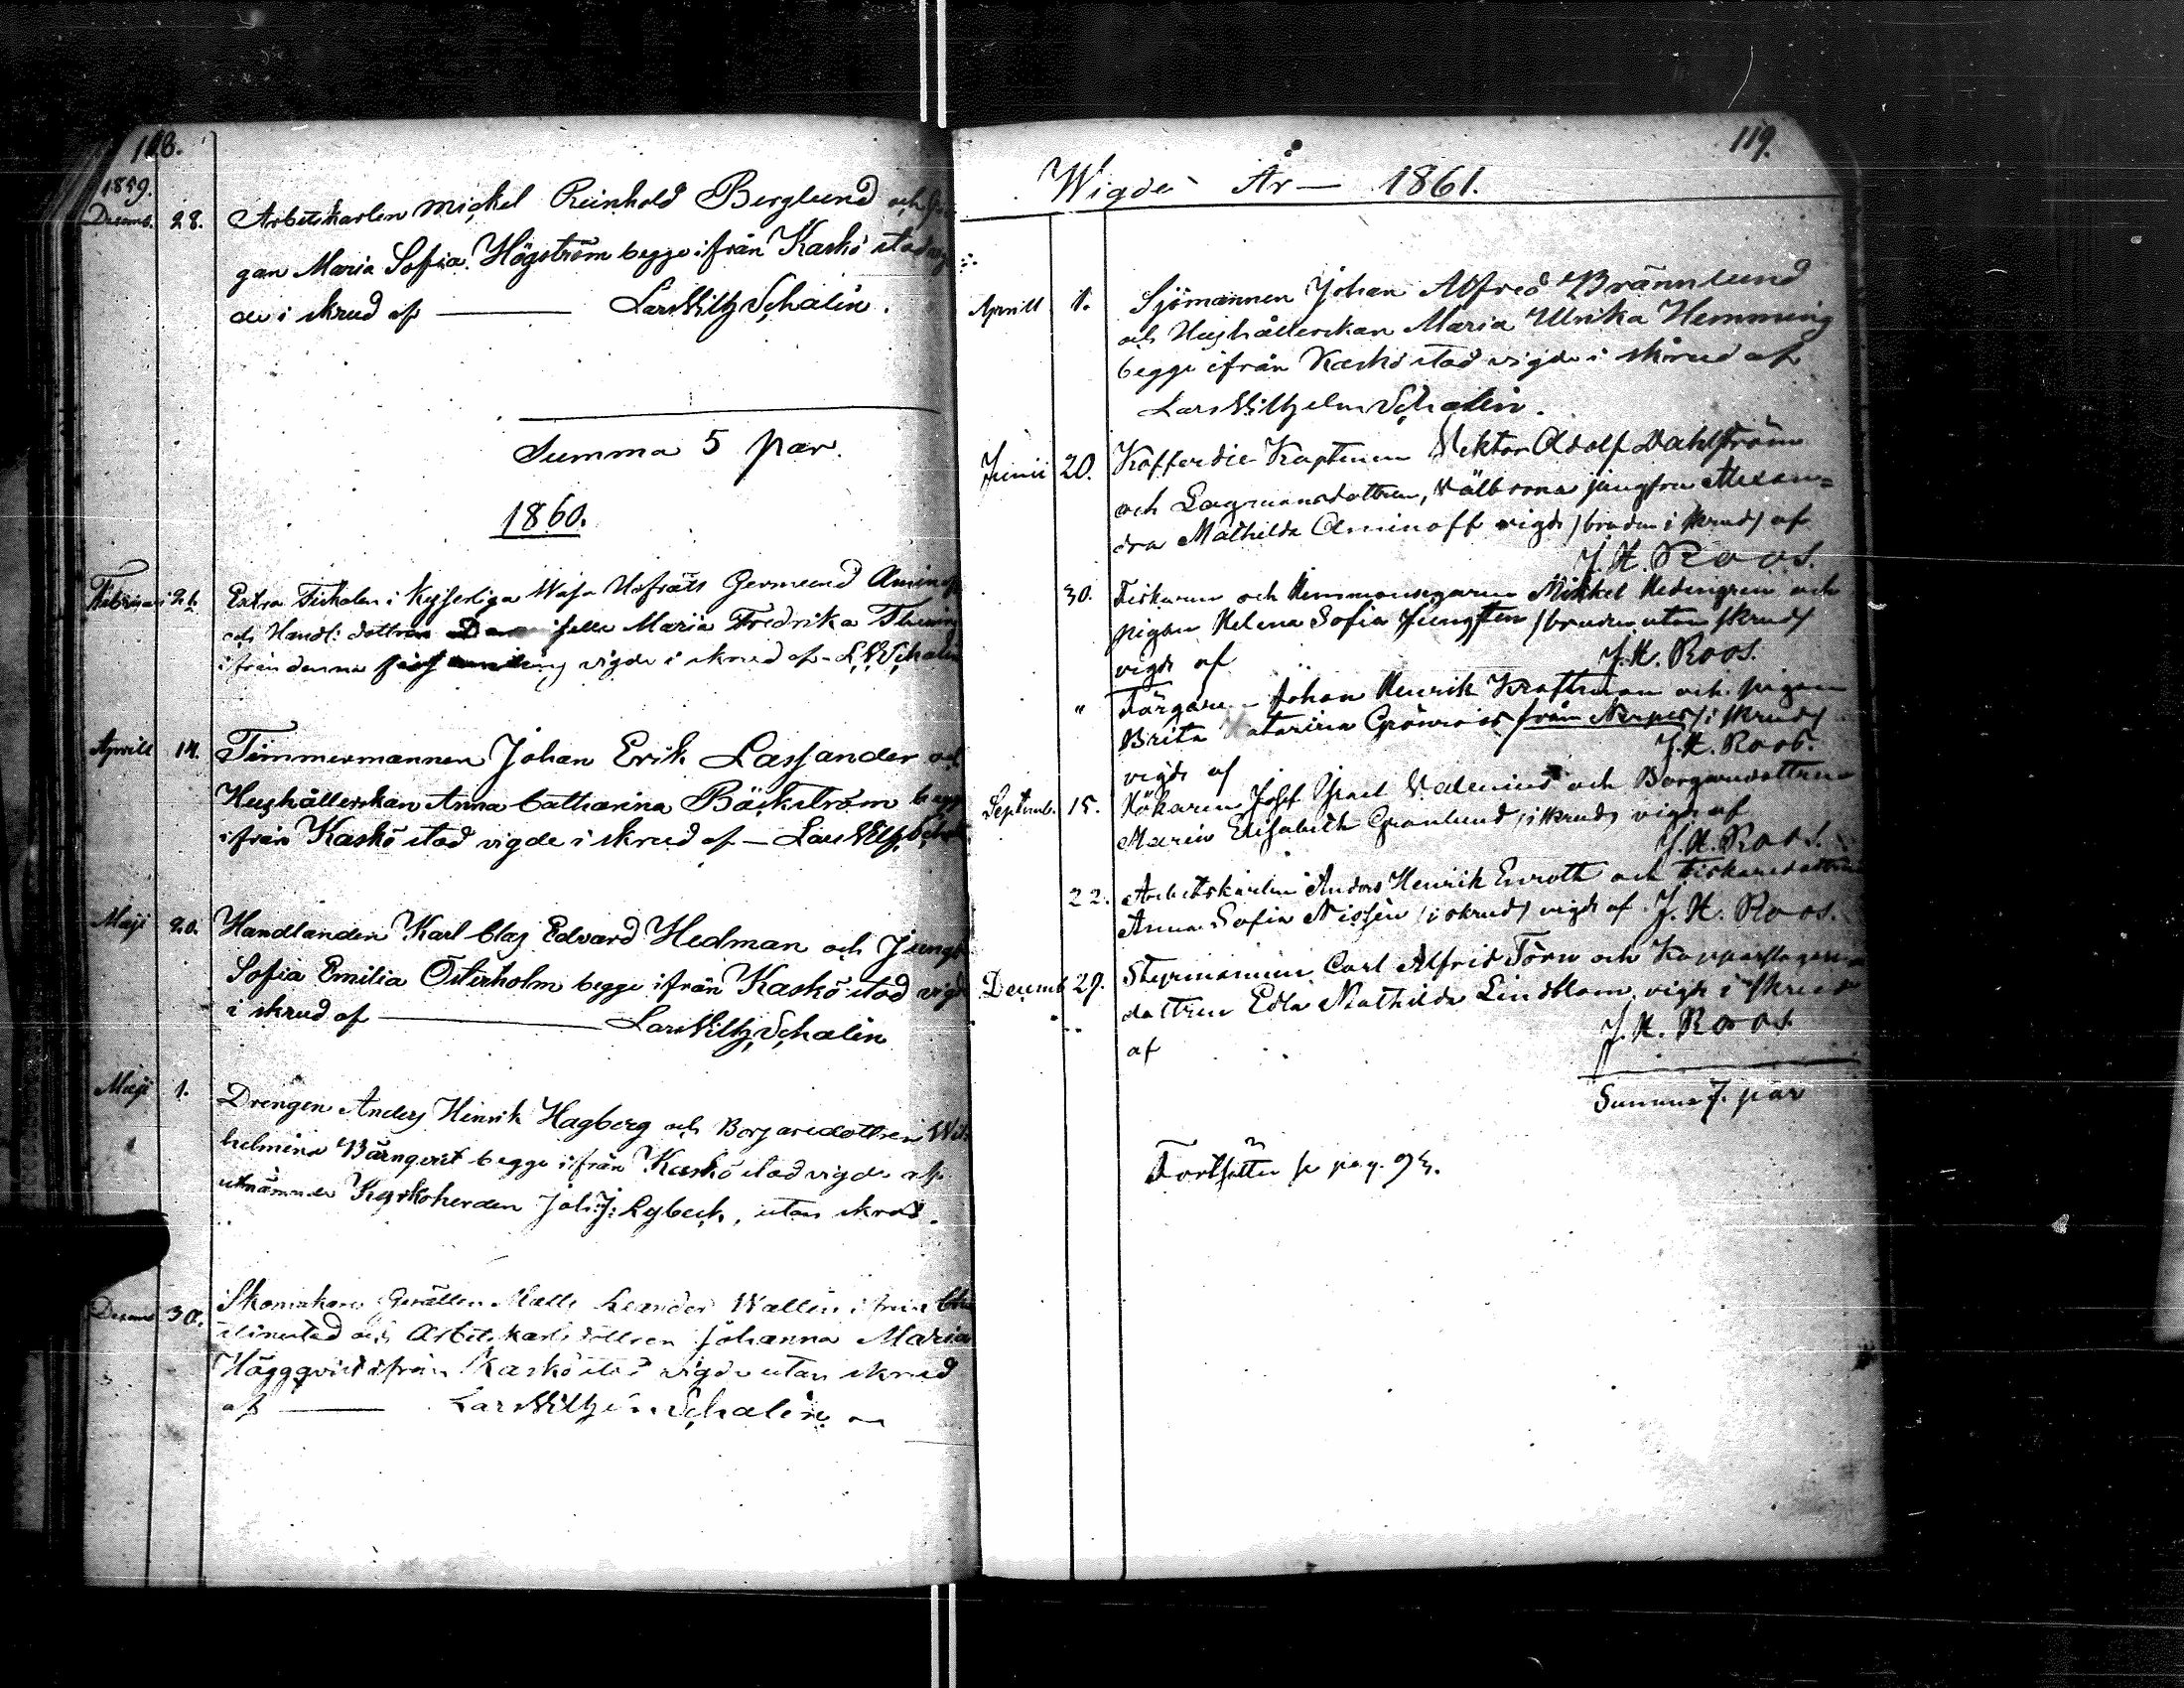 118.
1859.
Decemb. 28. Arbetskarlen Mickel Reinhold Berglund och
gan Maria Sofia Högström begge ifrån Kaskö stad
de i skrud af — Lars Wilh Schalin.
Summa 5 par.
1860.
Februari 21. Extra Fiskalen i Kejserliga Wasa Hofrätt Germund Aminoff
och Handl: dottren Maria Fredrika
ifrån denna vigde i skrud af - L W Schalin
Aprill 14. Timmermannen Johan Erik Lassander och
Hushållerskan Anna Catharina Bäckström begge
ifrån Kaskö stad vigde i skrud af — Lars Wilh. Schalin
Maji 20. Handlanden Karl Clas Edvard Hedman och Jungf
Sofia Emilia Österholm begge ifrån Kaskö stad vigde
i skrud af — Lars Wilh Schalin
Maji 1. Drengen Anders Henrik Hagberg och Borgaredottren Wil
helmina Bärnqvist begge ifrån Kaskö stad vigde af
utnämnde Kyrkoherden Joh: J: Lybeck, utan skrud.
Decemb 30. Skomakare Gesällen Leander Wallin ifrån
stinestad och Arbetskarls dottren Johanna Maria
Häggqvist ifrån Kaskö stad vigde utan skrud
af — Lars Wilhelm Schalin
119.
Wigde År — 1861.
Aprill 1. Sjömannen Johan Alfred Brännlund
och Hushållerskan Maria Ulrika Hemming
begge ifrån Kaskö stad vigde i skrud af
Lars Wilhelm Schalin.
Junii 20. Kofferdie Kaptenen Viktor Adolf Dahlström
och Lagmansdottren, Välborna jungfru Alexan=
dra Mathilda Aminoff vigde (bruden i skrud) af
J. H. Roos.
30. Fiskaren och Hemmansegaren Mikkel Hedengren och
pigan Helena Sofia Ljungsten (bruden utan skrud)
vigde af J. H. Roos.
" Färgaren Johan Henrik Kraftman och pigan
Brita Katarina från Nerpes (i skrud)
vigde af J. H. Roos.
Septemb. 15. Hökaren Josef Israel Valenius och Borgaredottren
Maria Elisabeth Granlund (i skrud) vigde af
J. H. Roos.
22. Arbetskarlen Anders Henrik Enroth och Fiskaredottren
Anna Sofia Nissén (i skrud) vigde af J. H. Roos.
Decemb 29. Styrmannen Carl Alfrid Törn och
dottren Edla Mathilda Lindblom vigde i skrud
af J. H. Roos
Summa 7. par
Fortsättes se pag. 95.